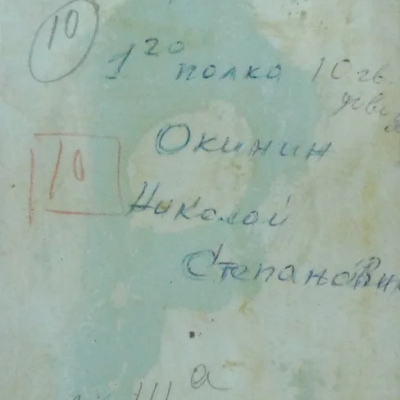 10
1го полка 10 гв
10
Окинин
Николай
Степанови
а